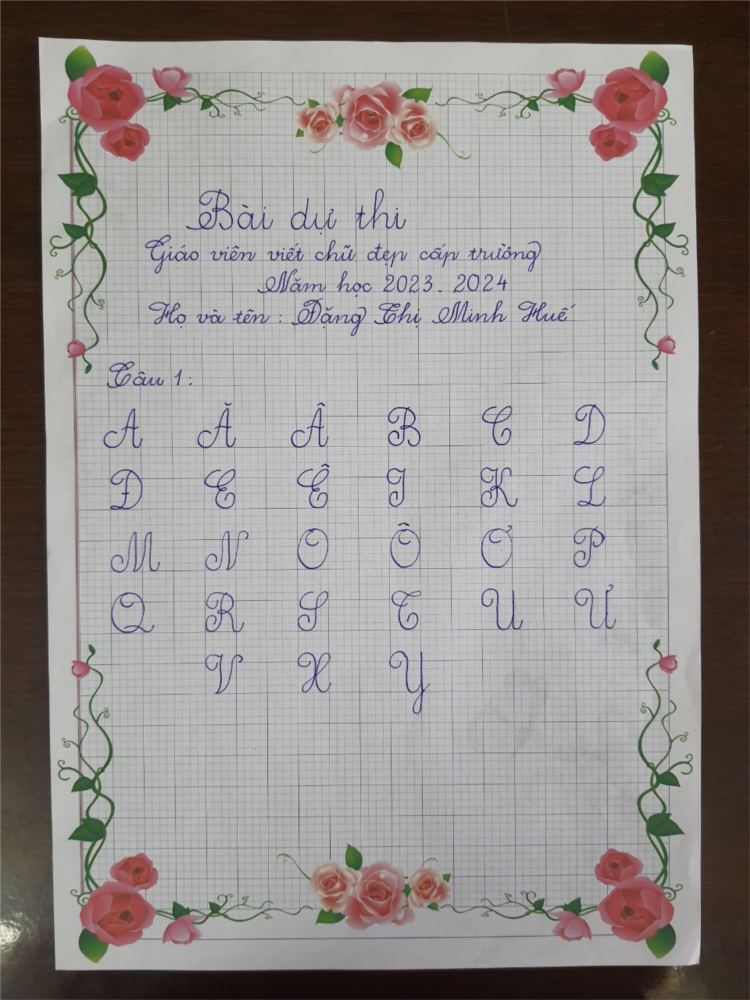 Bài dự thi
Giáo viên viết chữ đẹp cấp trường
Năm học 2023. 2024
Họ và tên : Đặng Thị Minh Huế
Câu 1:
A Ă Â B C D
Đ E Ê I K L
M N O Ô Ơ P
Q R S T U Ư
V X Y